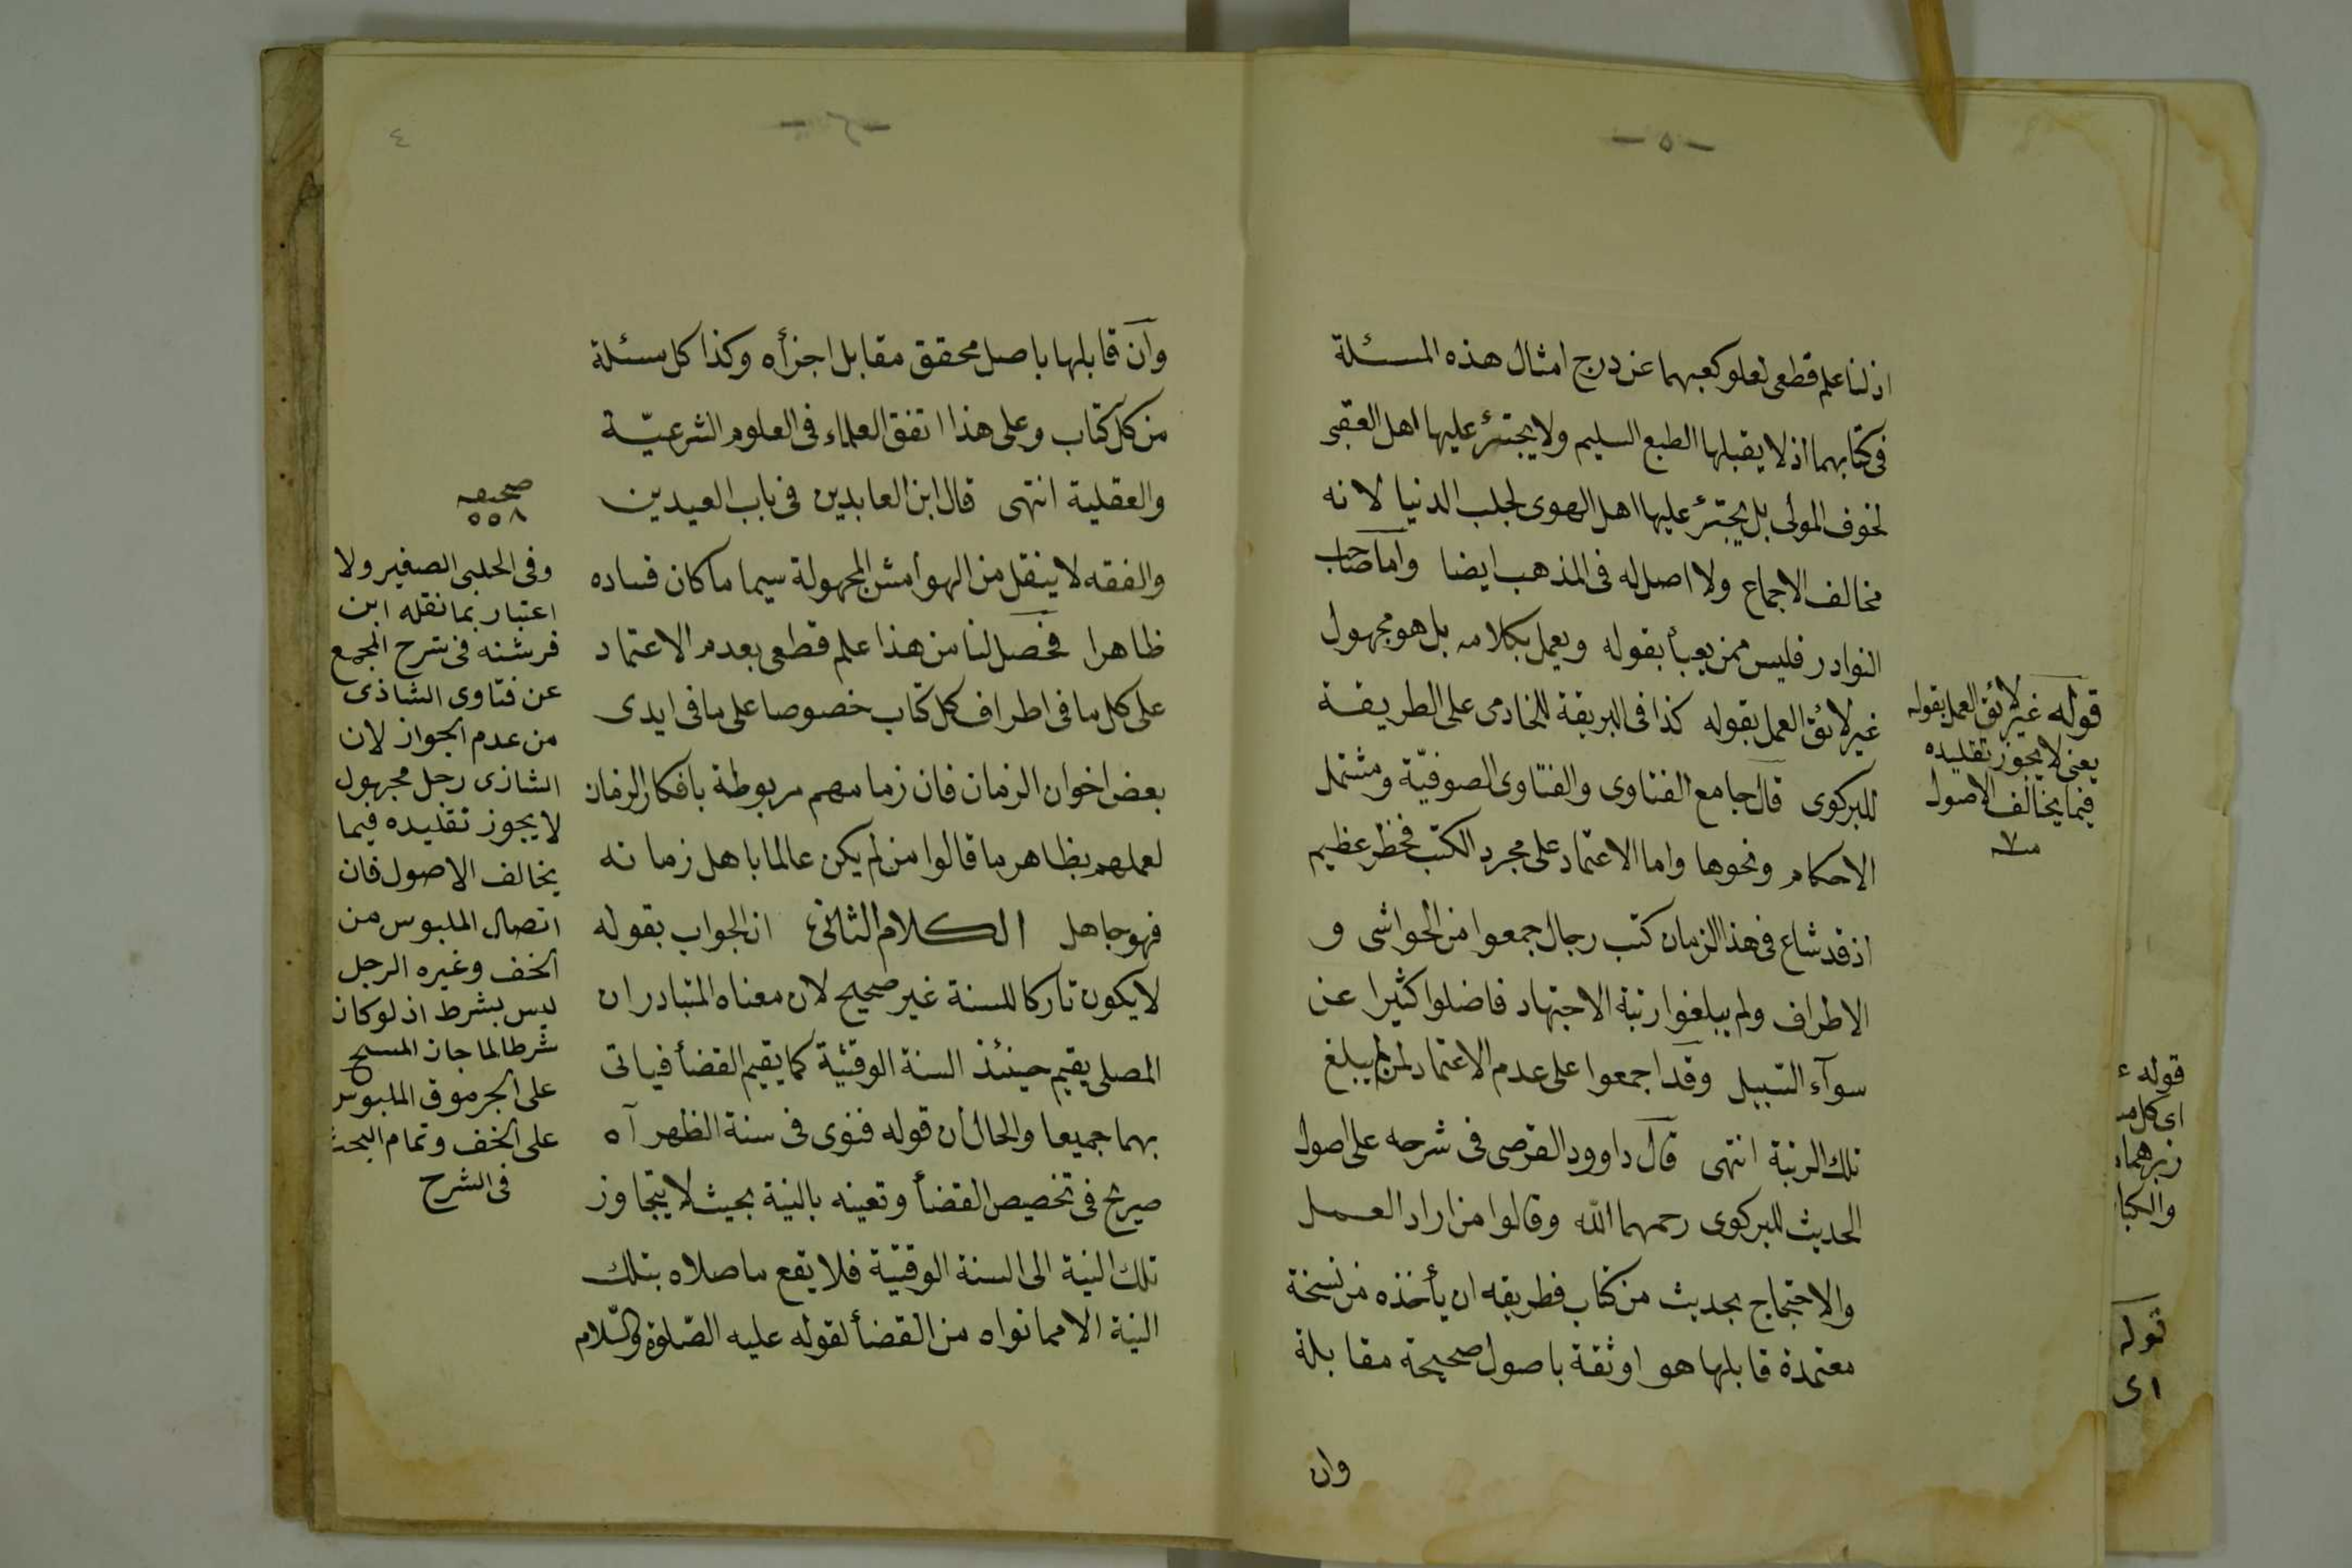 - ٥ -
اذ لنا علم قطعى لعلو كعبهما عن درج امثال هذه المسئلة
فى كتابهما اذ لا يقبلها الطبع السليم ولا يجترئ عليها اهل العقبى
لخوف المولى بل يجترئ عليها اهل الهوى لجلب الدنيا لانه
مخالف الاجماع ولا اصل له فى المذهب ايضا واما صاحب
النوادر فليس ممن يعبأ بقوله ويعمل بكلامه بل هو مجهول
غير لائق العمل بقوله كذا فى البريقة للخادمى على الطريقة
للبركوى قال جامع الفتاوى والفتاوى الصوفيّة ومشتمل
الاحكام ونحوها واما الاعتماد على مجرد الكتب فخطر عظيم
اذ قد شاع فى هذا الزمان كتب رجال جمعوا من الحواشى و
الاطراف ولم يبلغوا رتبة الاجتهاد فاضلوا كثيرا عن
سوآء السّبيل وقد اجمعوا على عدم الاعتماد لمن لم يبلغ
تلك الرتبة انتهى قال داوود القرصى فى شرحه على اصول
الحديث للبركوى رحمهما الله وقالوا من اراد العمل
والاحتجاج بحديث من كتاب فطريقه ان يأخذه من نسخة
معتمدة قابلها هو او ثقة باصول صحيحة مقابلة
وان
قوله غير لائق العمل بقوله
يعنى لا يجوز تقليده
فيما يخالف الاصول
منه
قوله
اى كل
زبرهما
والكبا
قوله
اى
- ٤ -
٤
وان قابلها باصل محقق مقابل اجزأه وكذا كل مسئلة
من كل كتاب وعلى هذا اتفق العلماء فى العلوم الشرعيّة
والعقلية انتهى قال ابن العابدين فى باب العيدين
والفقه لا ينقل من الهوامش المجهولة سيما ما كان فساده
ظاهرا فحصل لنا من هذا علم قطعى بعدم الاعتماد
على كل ما فى اطراف كل كتاب خصوصا على ما فى ايدى
بعض اخوان الزمان فان زمامهم مربوطة بافكار الزمان
لعملهم بظاهر ما قالوا من لم يكن عالما باهل زمانه
فهو جاهل الكلام الثانى ان الجواب بقوله
لا يكون تاركا للسنة غير صحيح لان معناه المتبادر ان
المصلى يقيم حينئذ السنة الوقتية كما يقيم القضأ فياتى
بهما جميعا والحال ان قوله فنوى فى سنة الظهر آه
صريح فى تخصيص القضأ وتعينه بالنية بحيث لا يتجاوز
تلك النية الى السنة الوقتيّة فلا يقع ما صلاه بتلك
النية الا مما نواه من القضأ لقوله عليه الصّلوة والسّلام
صحيفه
٥٥٨
وفى الحلبى الصغير ولا
اعتبار بما نقله ابن
فرشته فى شرح المجمع
عن فتاوى الشاذى
من عدم الجواز لان
الشاذى رجل مجهول
لا يجوز تقليده فيما
يخالف الاصول فان
اتصال الملبوس من
الخف وغيره الرجل
ليس بشرط اذ لو كان
شرطا لما جاز المسح
على الجرموق الملبوس
على الخف وتمام البحث
فى الشرح